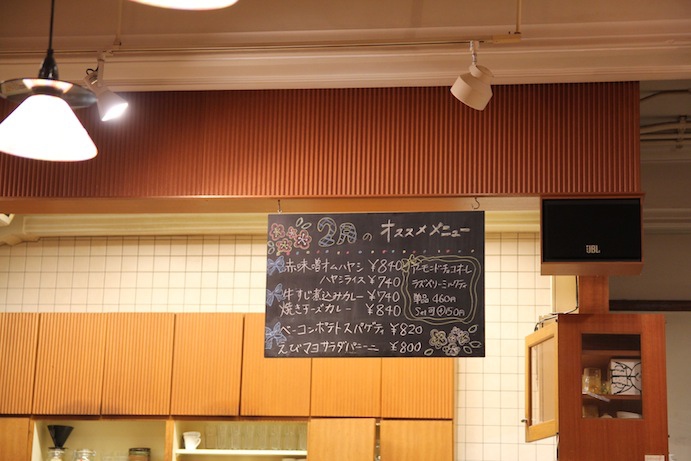 2月のオススメメニュー
赤味噌オムハヤシ ¥840
ハヤシライス ¥740
牛すじ煮込みカレー ¥740
焼きチーズカレー ¥840
ベーコンポテトスパゲティ ¥820
えびマヨサラダパニーニ ¥800
アーモンドチョコオーレ
ラズベリーミルクティ
単品 460円
Set可 ⊕150円
JBL